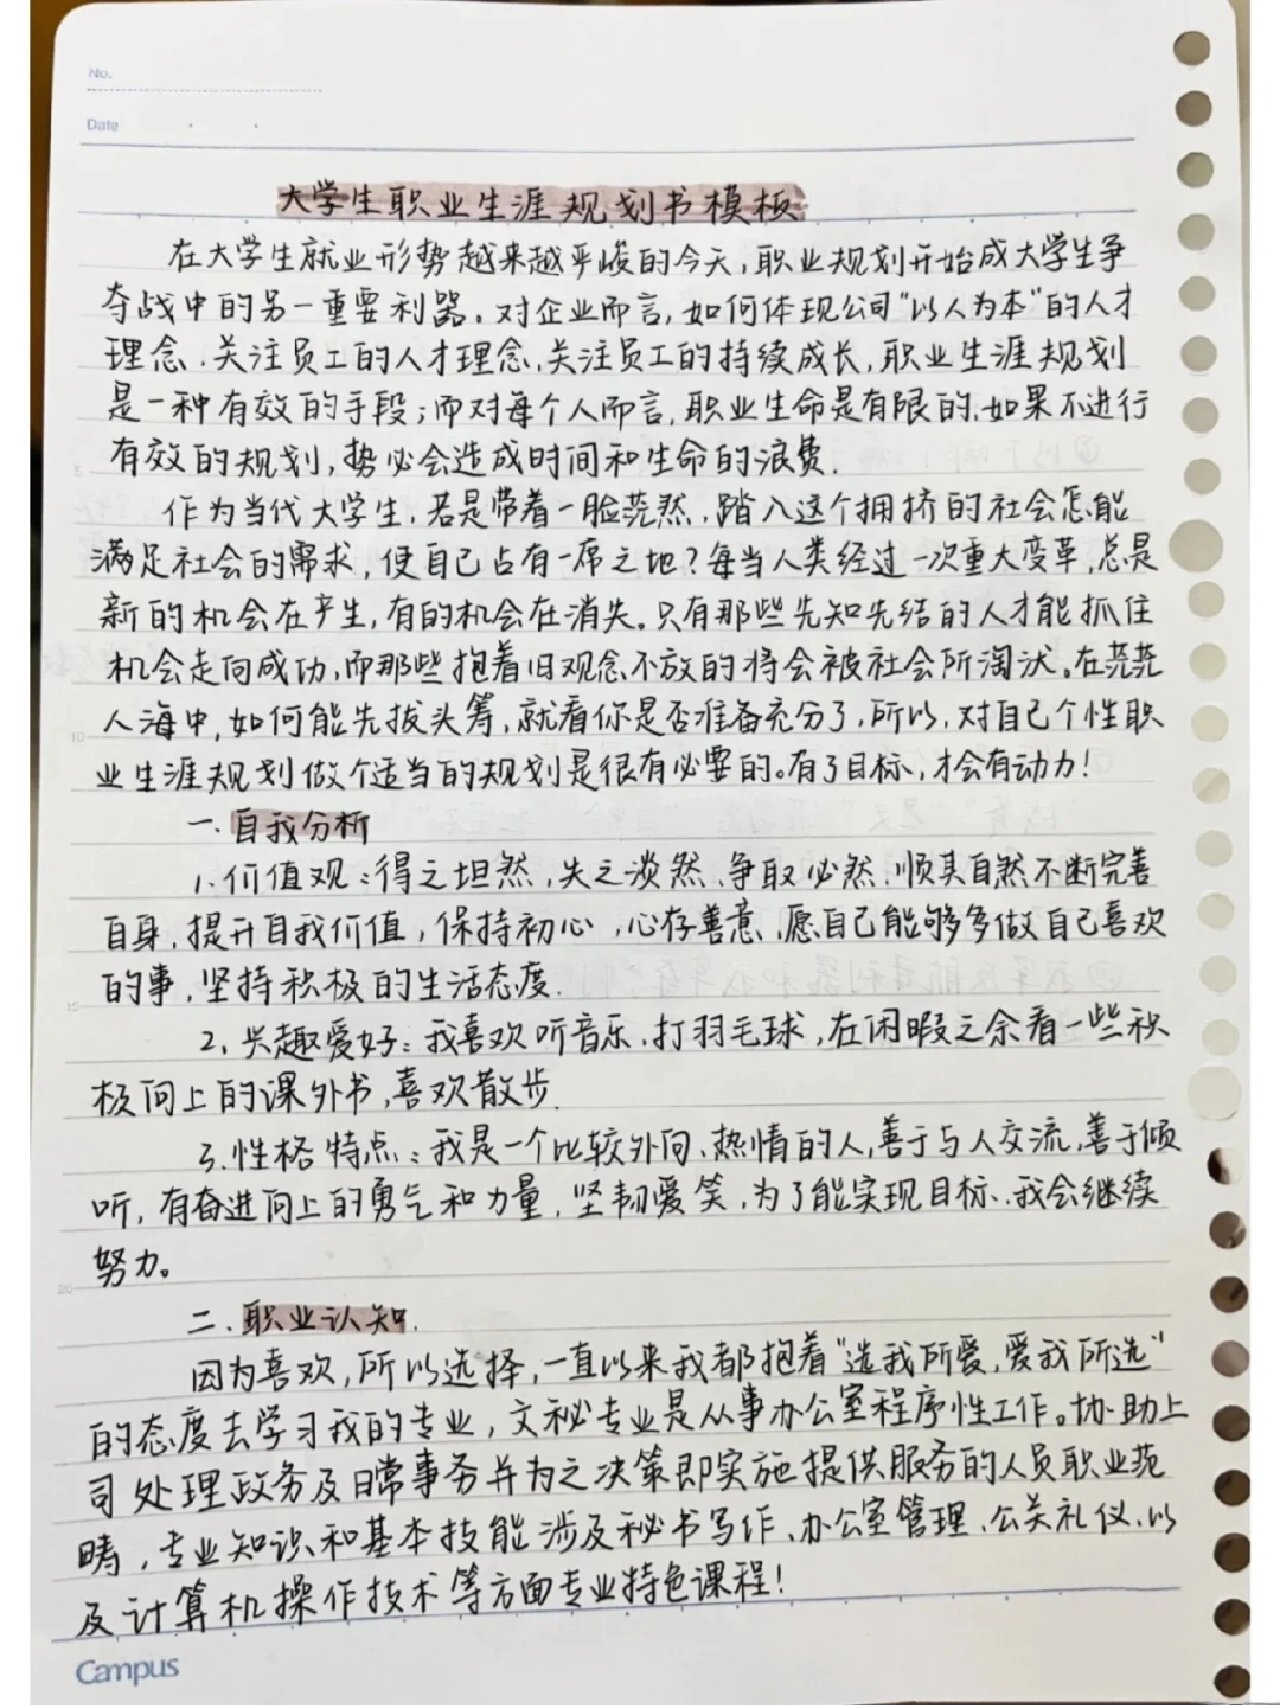 No.
Date
大学生职业生涯规划书模板
在大学生就业形势越来越严峻的今天,职业规划开始成大学生争
夺战中的另一重要利器。对企业而言,如何体现公司“以人为本”的人才
理念、关注员工的人才理念,关注员工的持续成长,职业生涯规划
是一种有效的手段;而对每个人而言,职业生命是有限的,如果不进行
有效的规划,势必会造成时间和生命的浪费.
作为当代大学生,若是带着一脸茫然,踏入这个拥挤的社会怎能
满足社会的需求,使自己占有一席之地?每当人类经过一次重大变革,总是
新的机会在产生,有的机会在消失。只有那些先知先结的人才能抓住
机会走向成功,而那些抱着旧观念不放的将会被社会所淘汰。在茫茫
人海中,如何能先拔头筹,就看你是否准备充分了,所以,对自己个性职
业生涯规划做个适当的规划是很有必要的。有了目标,才会有动力!
一.自我分析
1、价值观:得之坦然,失之淡然、争取必然、顺其自然不断完善
自身,提升自我价值,保持初心,心存善意,愿自己能够多做自己喜欢
的事,坚持积极的生活态度.
2、兴趣爱好:我喜欢听音乐、打羽毛球,在闲暇之余看一些积
极向上的课外书,喜欢散步.
3.性格特点:我是一个比较外向、热情的人,善于与人交流,善于倾
听,有奋进向上的勇气和力量,坚韧爱笑,为了能实现目标、我会继续
努力。
二.职业认知.
因为喜欢,所以选择,一直以来我都抱着“选我所爱,爱我所选”
的态度去学习我的专业,文秘专业是从事办公室程序性工作。协助上
司处理政务及日常事务并为之决策即实施提供服务的人员职业范
畴,专业知识和基本技能涉及秘书写作、办公室管理、公关礼仪、以
及计算机操作技术等方面专业特色课程!
Campus